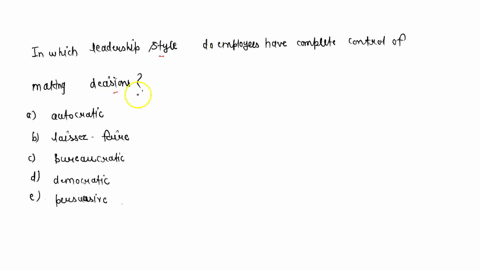 In which leadership style do employees have complete control of
making decisions?
a) autocratic
b) laissez-faire
c) Bureaucratic
d) democratic
e) persuasive